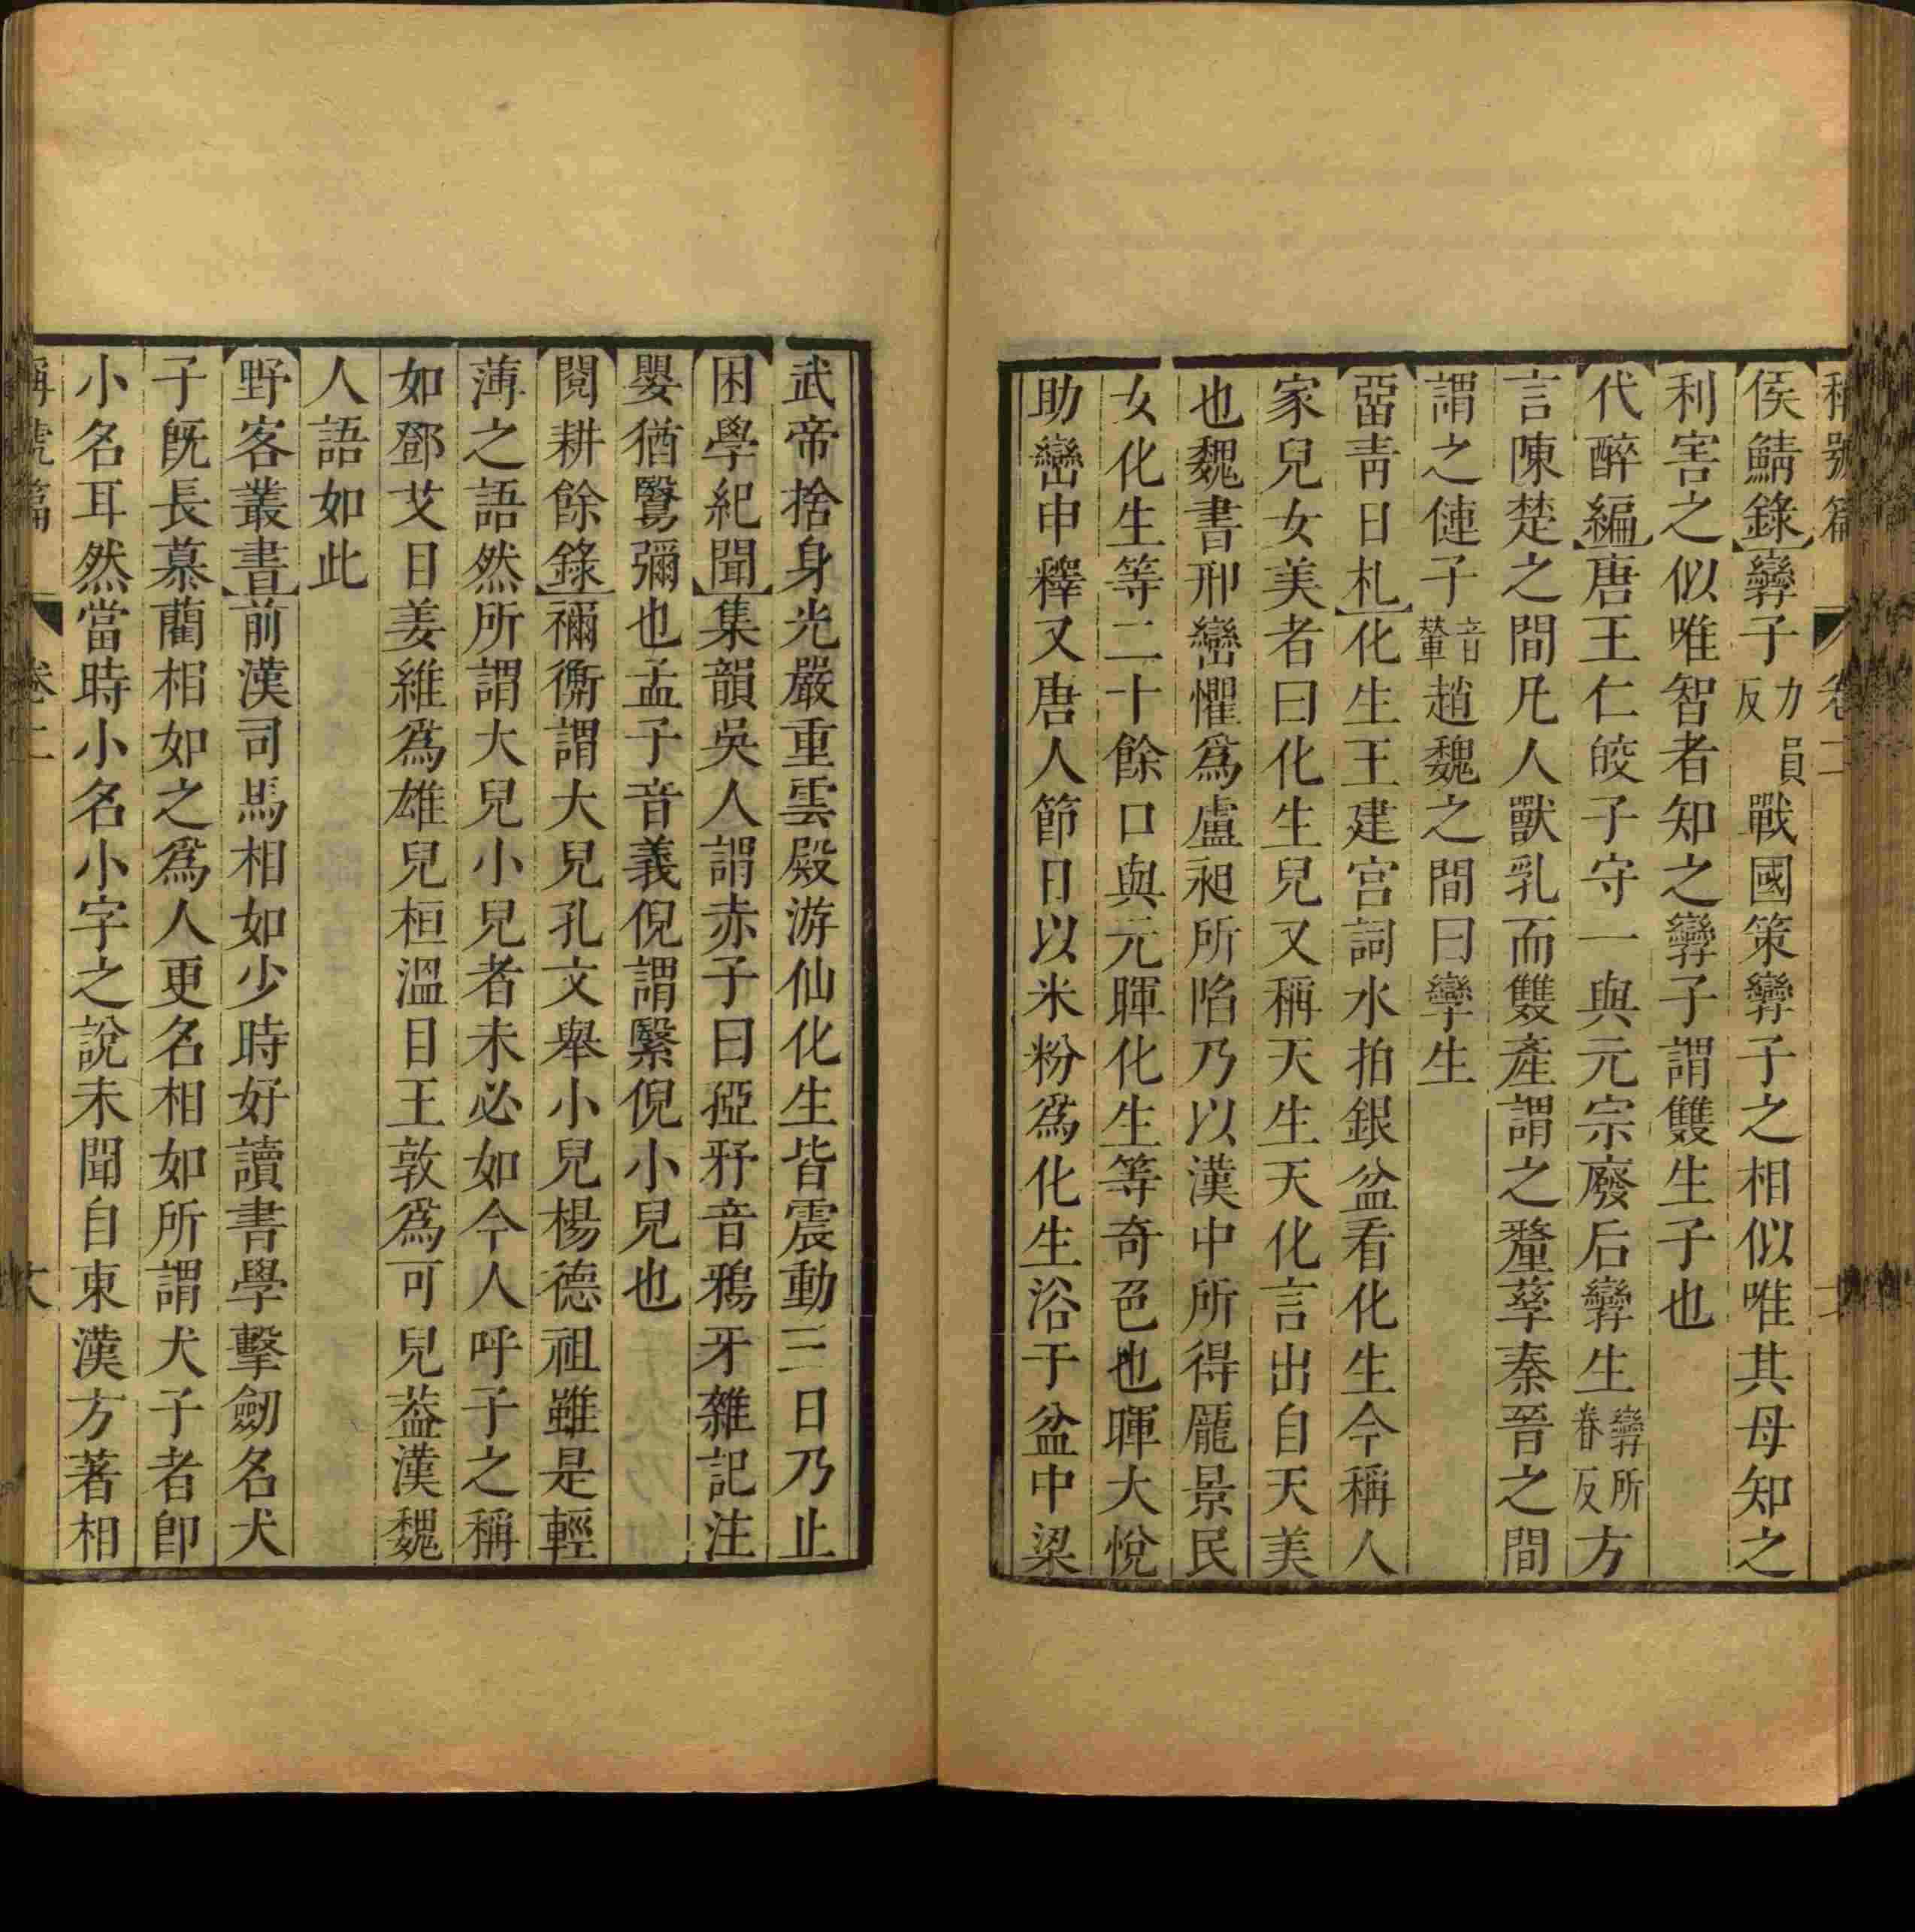 稱號篇　卷二
侯鯖錄孿子力員反戰國策孿子之相似唯其母知之
利害之似唯智者知之孿子謂雙生子也
代醉編唐王仁皎子守一與元宗廢后孿生孿所眷反方
言陳楚之間凡人獸乳而雙產謂之釐孳秦晉之間
謂之僆子音輦趙魏之間曰孿生
畱青日札化生王建宮詞水拍銀盆看化生今稱人
家兒女美者曰化生兒又稱天生天化言出自天美
也魏書邢巒懼爲盧昶所陷乃以漢中所得龐景民
女化生等二十餘口與元暉化生等奇色也暉大悅
助巒申釋又唐人節日以米粉爲化生浴于盆中梁
武帝捨身光嚴重雲殿游仙化生皆震動三日乃止
困學紀聞集韻吳人謂赤子曰孲㺝音鴉牙雜記注
嬰猶鷖彌也孟子音義倪謂繄倪小兒也
閱耕餘錄禰衡謂大兒孔文舉小兒楊德祖雖是輕
薄之語然所謂大兒小兒者未必如今人呼子之稱
如鄧艾目姜維爲雄兒桓溫目王敦爲可兒葢漢魏
人語如此
野客叢書前漢司馬相如少時好讀書學擊劒名犬
子旣長慕藺相如之爲人更名相如所謂犬子者卽
小名耳然當時小名小字之說未聞自東漢方著相
稱號篇　卷二